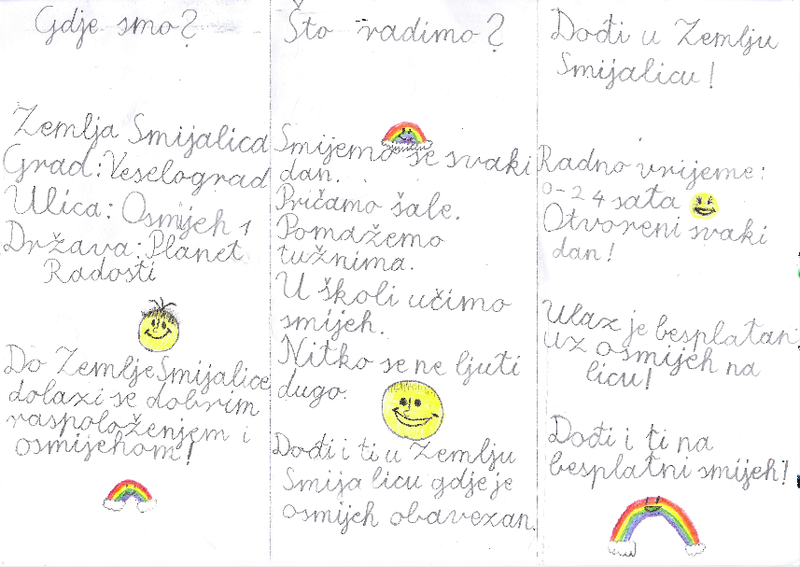 Gdje smo?
Zemlja Smijalica
Grad: Veselograd
Ulica: Osmijeh 1
Država: Planet
Radosti
Do Zemlje Smijalice
dolazi se dobrim
raspoloženjem i
osmijehom!
Što radimo?
Smijemo se svaki
dan.
Pričamo šale.
Pomažemo
tužnima.
U školi učimo
smijeh.
Nitko se ne ljuti
dugo.
Dođi i ti u Zemlju
Smijalicu gdje je
osmijeh obavezan.
Dođi u Zemlju
Smijalicu!
Radno vrijeme:
0-24 sata
Otvoreni svaki
dan!
Ulaz je besplatan
uz osmijeh na
licu!
Dođi i ti na
besplatni smijeh!